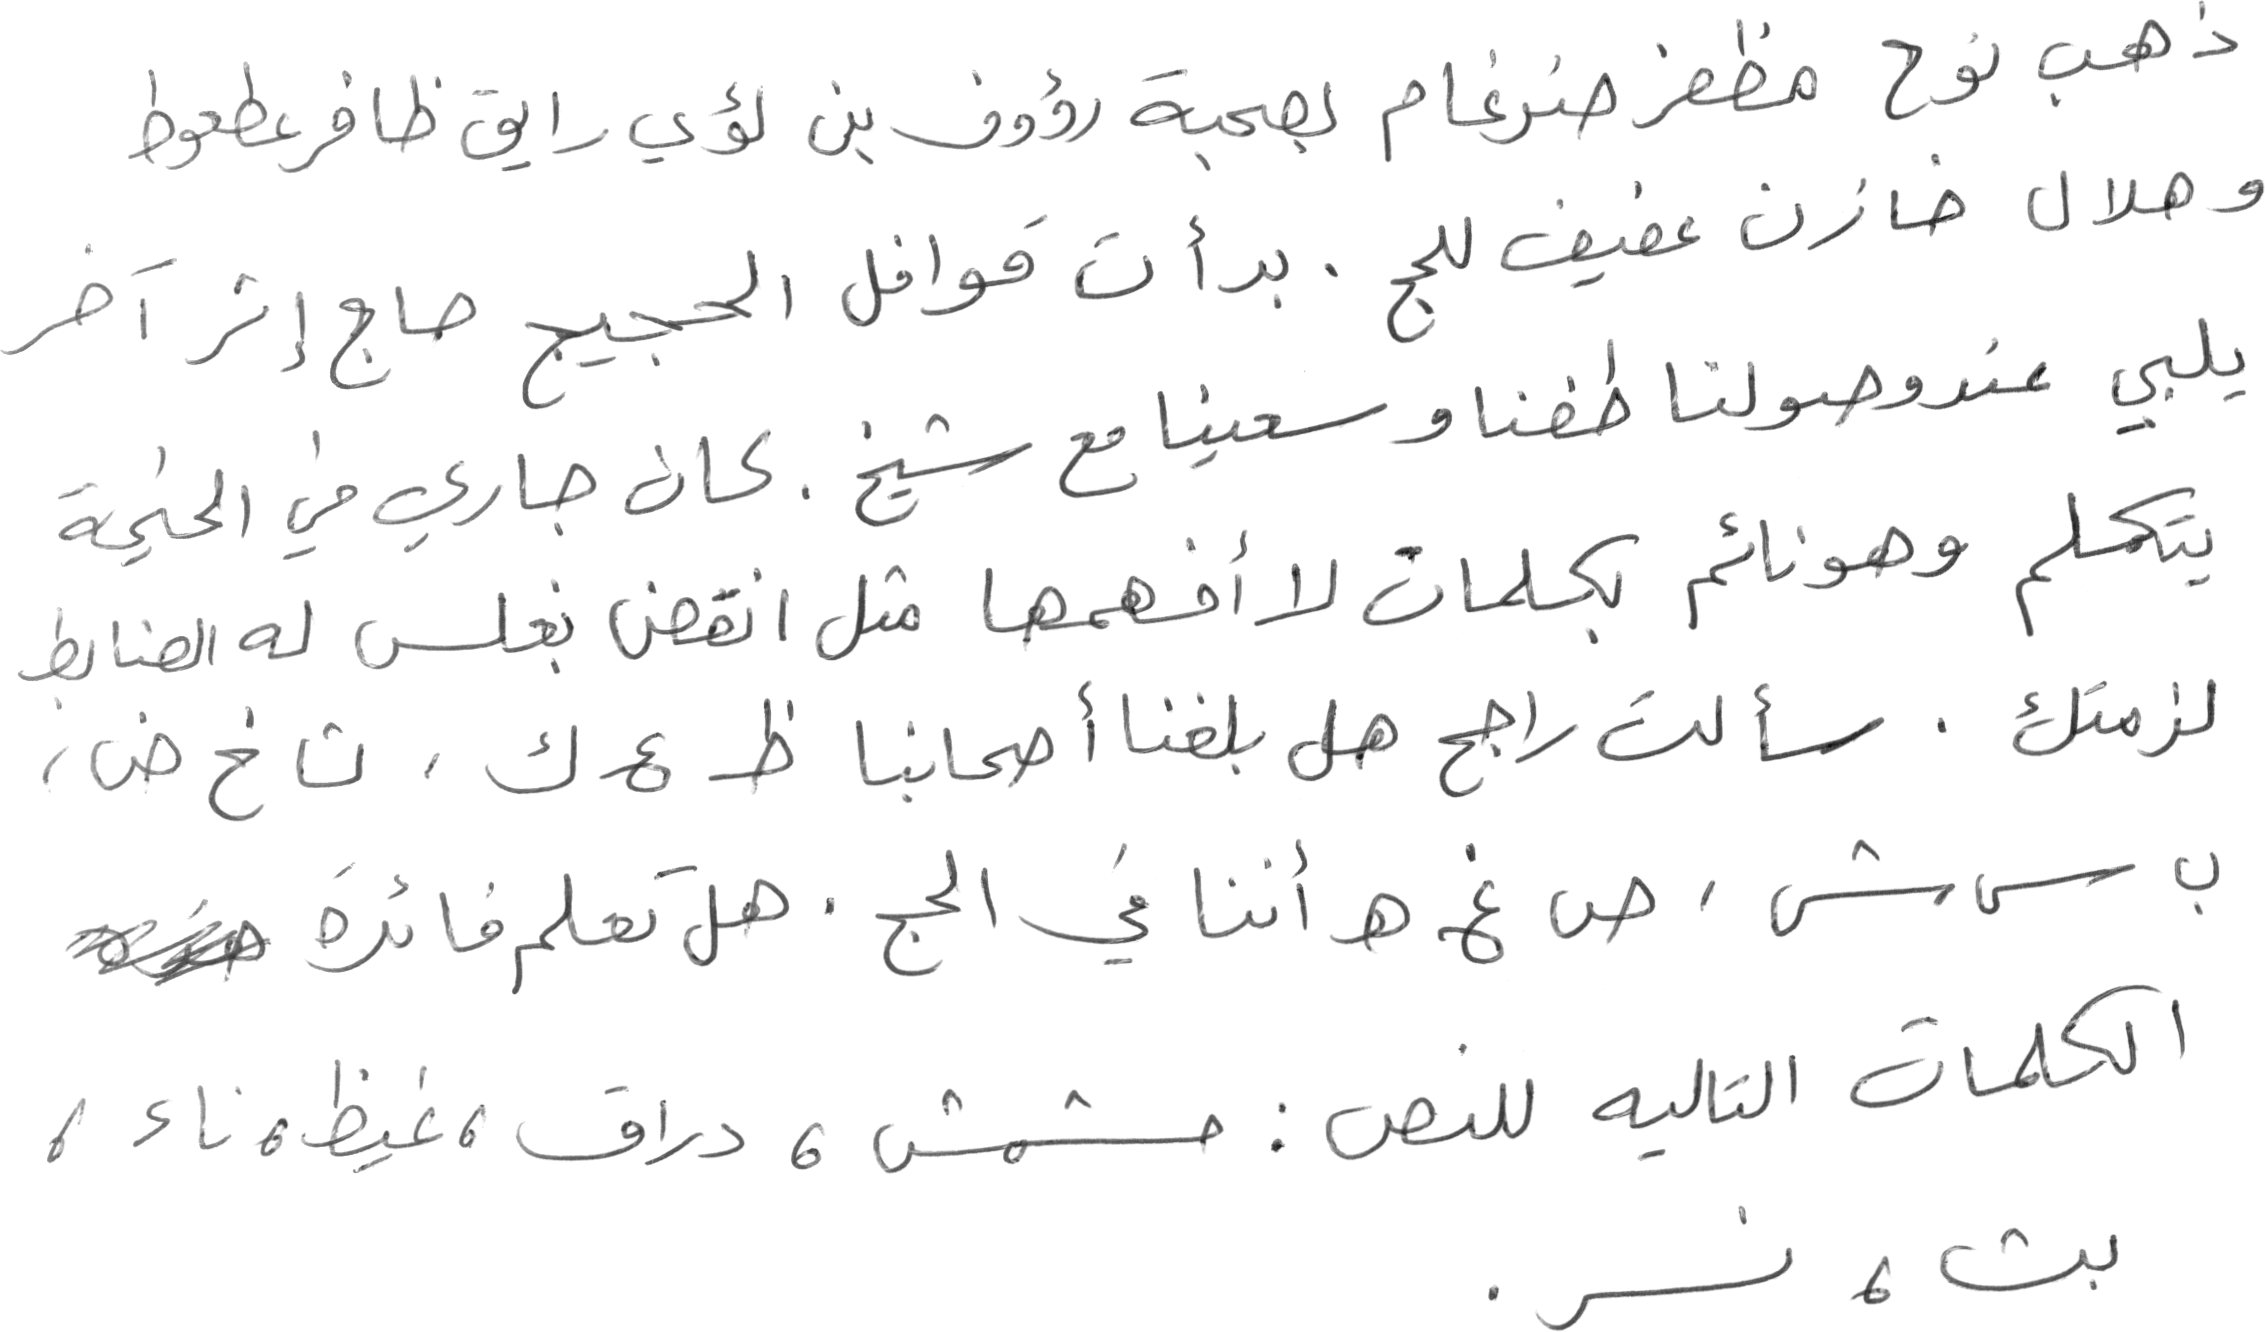 ذهب نوح مظفر ضرغام بصحبة رؤوف بن لؤي رايق ظافر عطعوط
وهلال خازن عفيف للحج . بدأت قوافل الحجيج حاج إثر آخر
يلبي عند وصولنا طفنا وسعينا مع شيخ . كان جاري في الخيمة
يتكلم وهو نائم بكلمات لا أفهمها مثل انقض بغلس له الضابط
لزمتك . سألت راجح هل بلغنا أصحابنا ظ ع ك ، ث خ ض ،
ب س ش ، ص غ هـ أننا في الحج . هل تعلم فائدة
الكلمات التاليه للنص : مشمش ، دراق ، غيظ ، ناء ،
بث ، نسر .